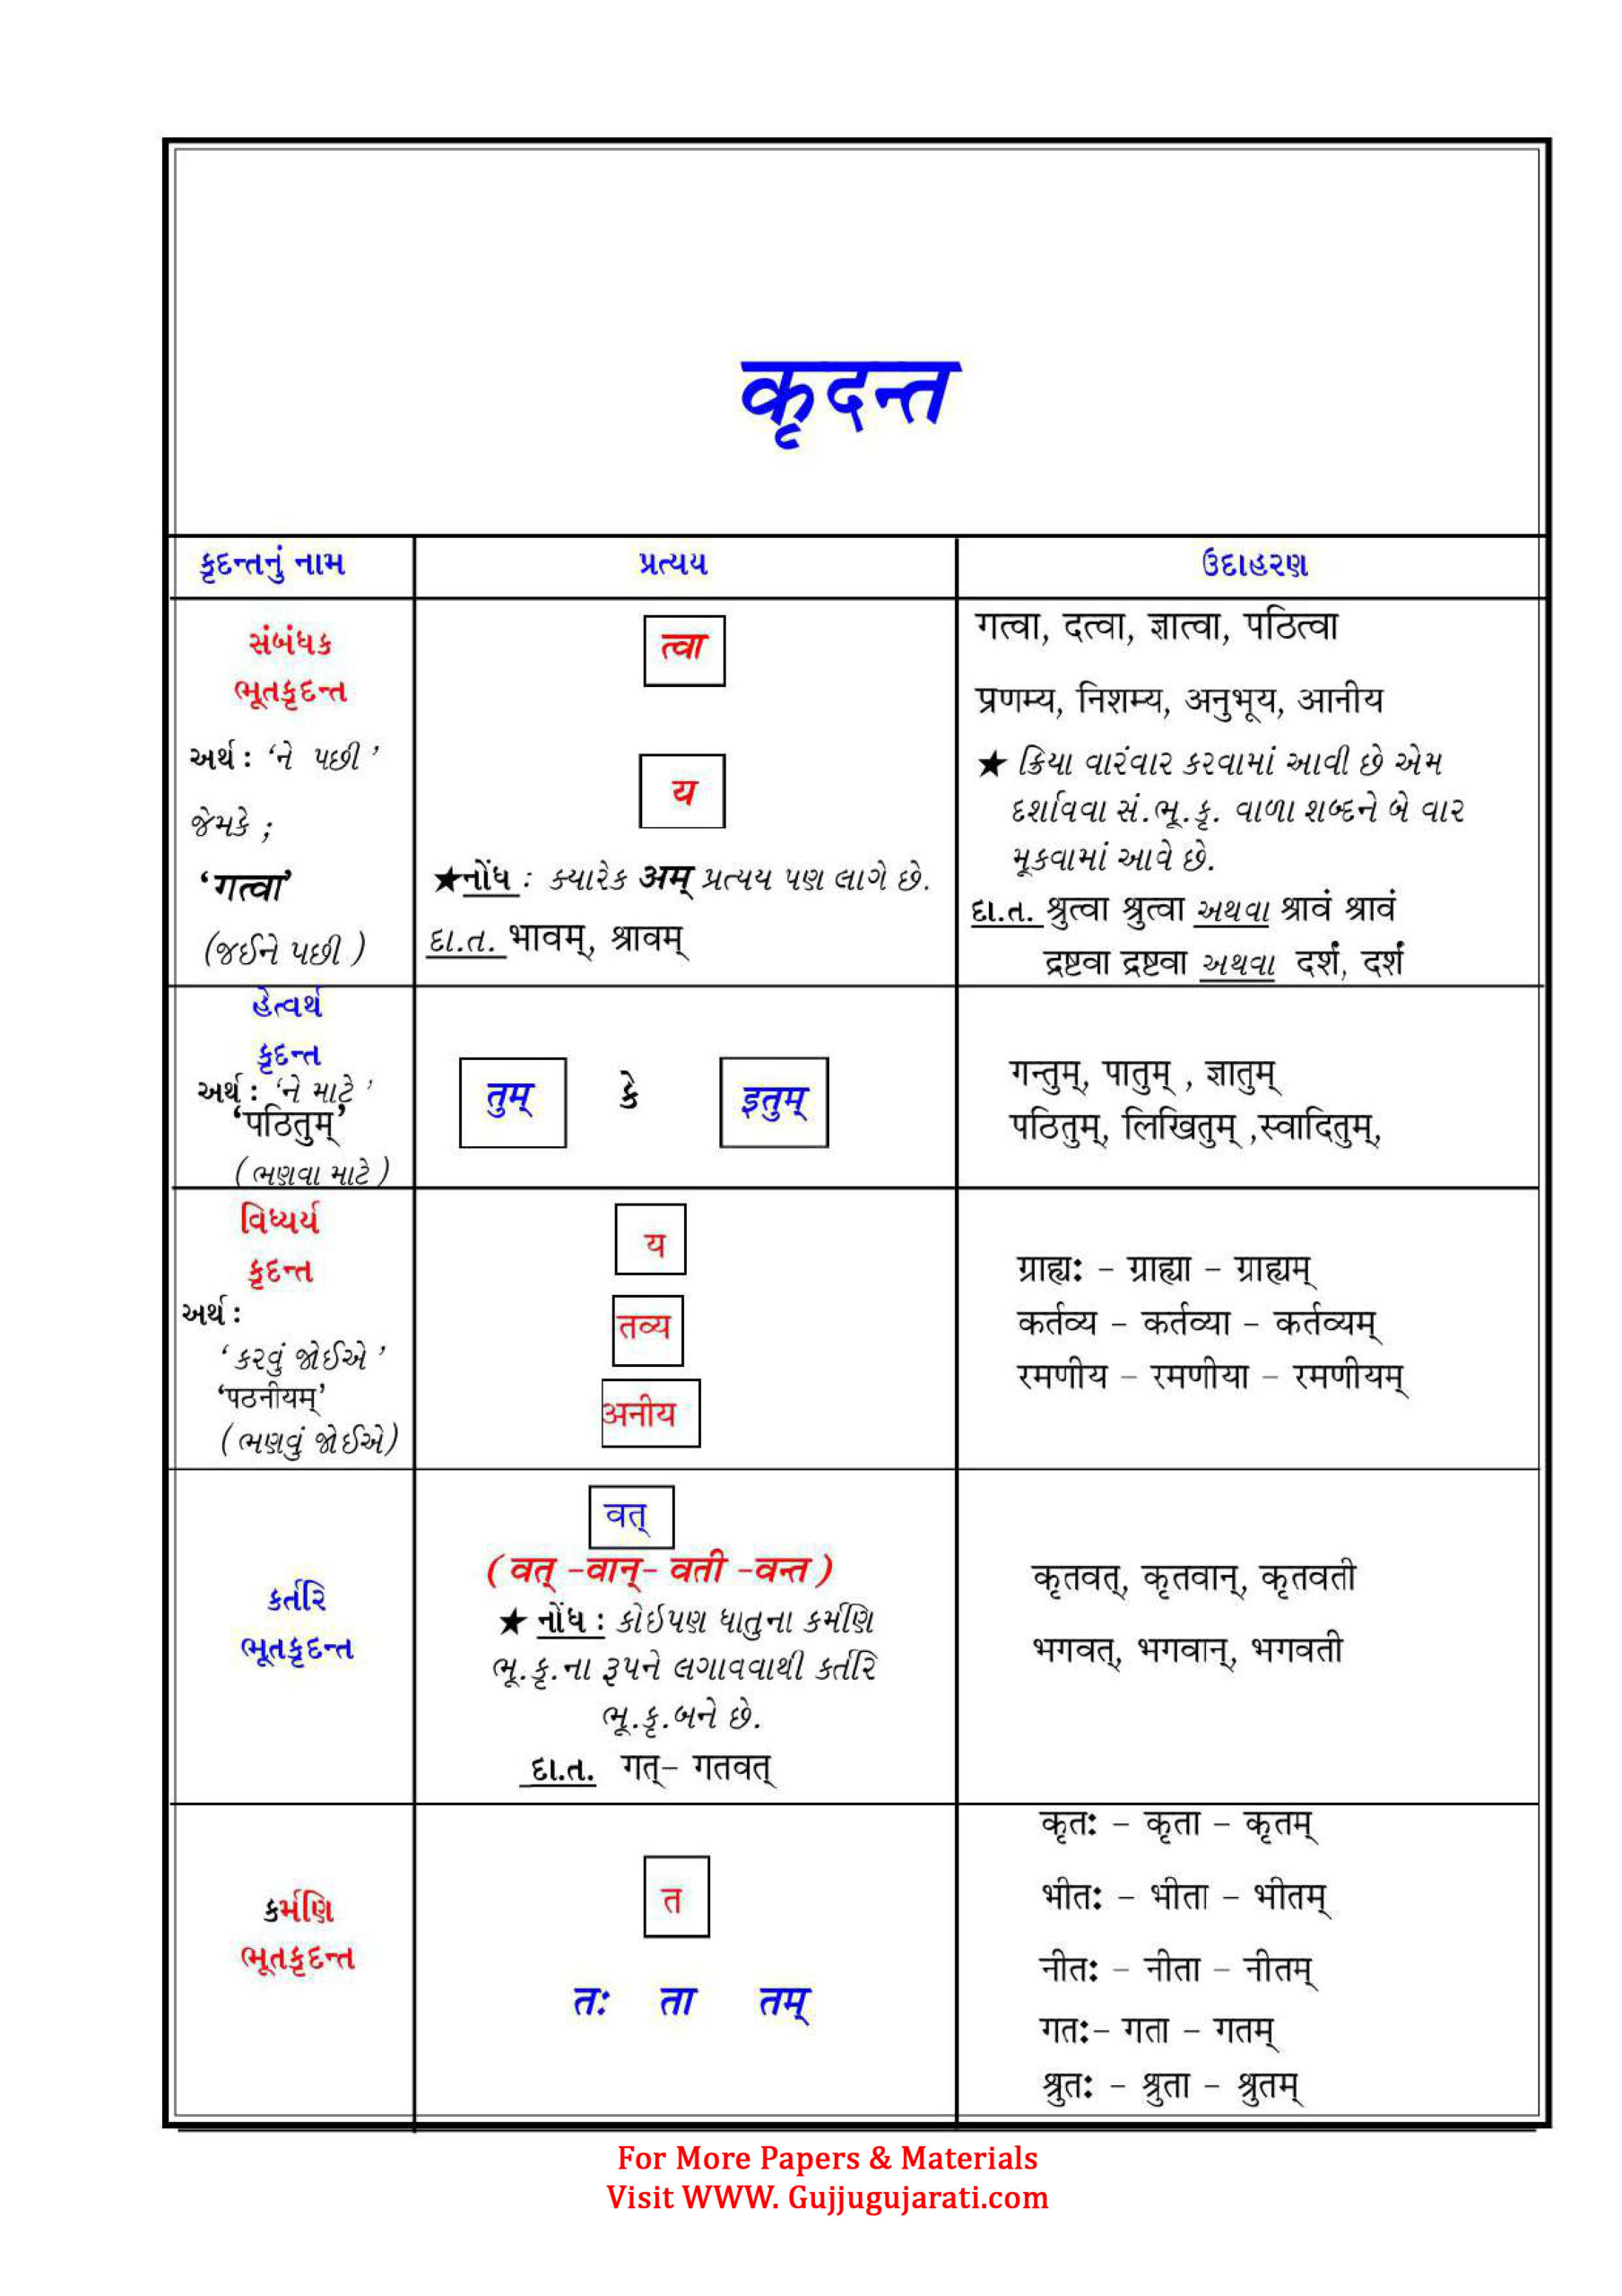 कृदन्त
કૃદન્તનું નામ
પ્રત્યય
ઉદાહરણ
સંબંધક
ભૂતકૃદન્ત
અર્થ : ‘ને પછી ’
જેમકે ;
‘गत्वा’
(જઈને પછી )
त्वा
य
★નોંધ : ક્યારેક अम् પ્રત્યય પણ લાગે છે.
દા.ત. भावम्, श्रावम्
गत्वा, दत्वा, ज्ञात्वा, पठित्वा
प्रणम्य, निशम्य, अनुभूय, आनीय
★ ક્રિયા વારંવાર કરવામાં આવી છે એમ
દર્શાવવા સં.ભૂ.કૃ. વાળા શબ્દને બે વાર
મૂકવામાં આવે છે.
દા.ત. श्रुत्वा श्रुत्वा અથવા श्रावं श्रावं
द्रष्टवा द्रष्टवा અથવા दर्शं, दर्शं
હેત્વર્થ
કૃદન્ત
અર્થ : ‘ને માટે ’
‘पठितुम्’
( ભણવા માટે )
तुम् કે इतुम्
गन्तुम्, पातुम् , ज्ञातुम्
पठितुम्, लिखितुम् ,स्वादितुम्,
વિધ્યર્ય
કૃદન્ત
અર્થ :
‘ કરવું જોઈએ ’
‘पठनीयम्’
( ભણવું જોઈએ)
य
तव्य
अनीय
ग्राह्यः – ग्राह्या – ग्राह्यम्
कर्तव्य – कर्तव्या – कर्तव्यम्
रमणीय – रमणीया – रमणीयम्
કર્તરિ
ભૂતકૃદન્ત
वत्
( वत् –वान्– वती –वन्त )
★ નોંધ : કોઈપણ ધાતુના કર્મણિ
ભૂ.કૃ.ના રૂપને લગાવવાથી કર્તરિ
ભૂ.કૃ.બને છે.
દા.ત. गत्– गतवत्
कृतवत्, कृतवान्, कृतवती
भगवत्, भगवान्, भगवती
કર્મણિ
ભૂતકૃદન્ત
त
तः ता तम्
कृतः – कृता – कृतम्
भीतः – भीता – भीतम्
नीतः – नीता – नीतम्
गतः– गता – गतम्
श्रुतः – श्रुता – श्रुतम्
For More Papers & Materials
Visit WWW. Gujjugujarati.com